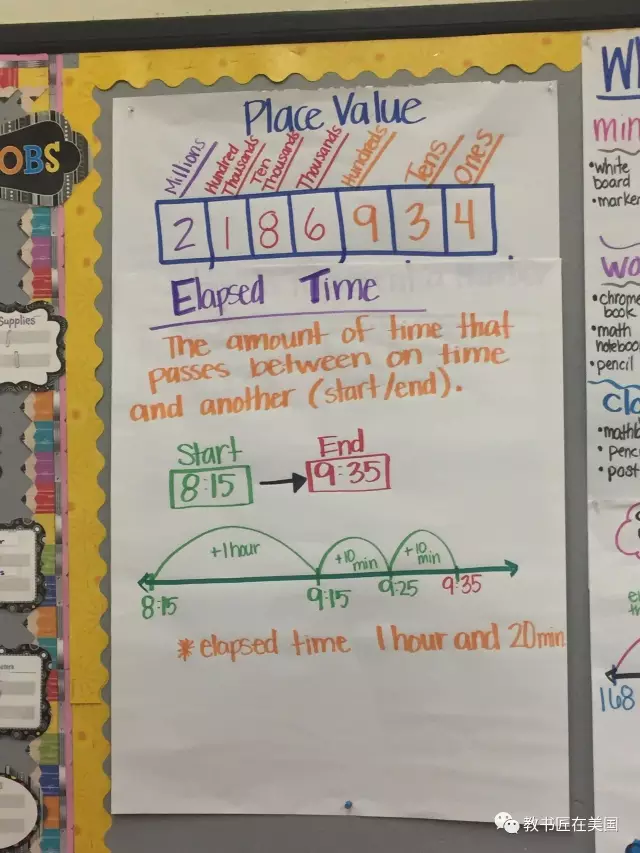 OBS
Supplies
Place Value
Millions
Hundred Thousands
Ten Thousands
Thousands
Hundreds
Tens
Ones
2,186,934.
Elapsed Time
The amount of time that
passes between on time
and another (start/end).
Start End
8:15 9:35
+1 hour +10 min +10 min
8:15 9:15 9:25 9:35
*elapsed time 1 hour and 20min
min
•white
board
•marke
•chrome
book
•math
noteboo
•pencil
clo
•mathb
•penc
•post
168
教书匠在美国